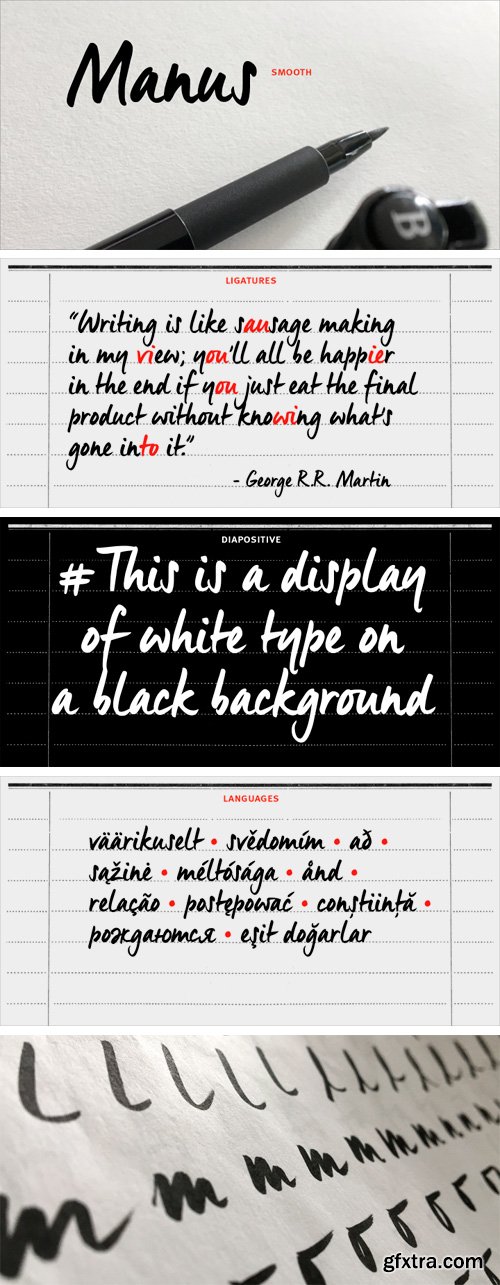 Manus SMOOTH
B
LIGATURES
"Writing is like sausage making
in my view; you'll all be happier
in the end if you just eat the final
product without knowing what's
gone into it."
- George R.R. Martin
DIAPOSITIVE
# This is a display
of white type on
a black background
LANGUAGES
väärikuselt • svědomím • að •
sąžinė • méltósága • ånd •
relação • postępować • conștiință •
рождаются • eşit doğarlar
gfxtra.com